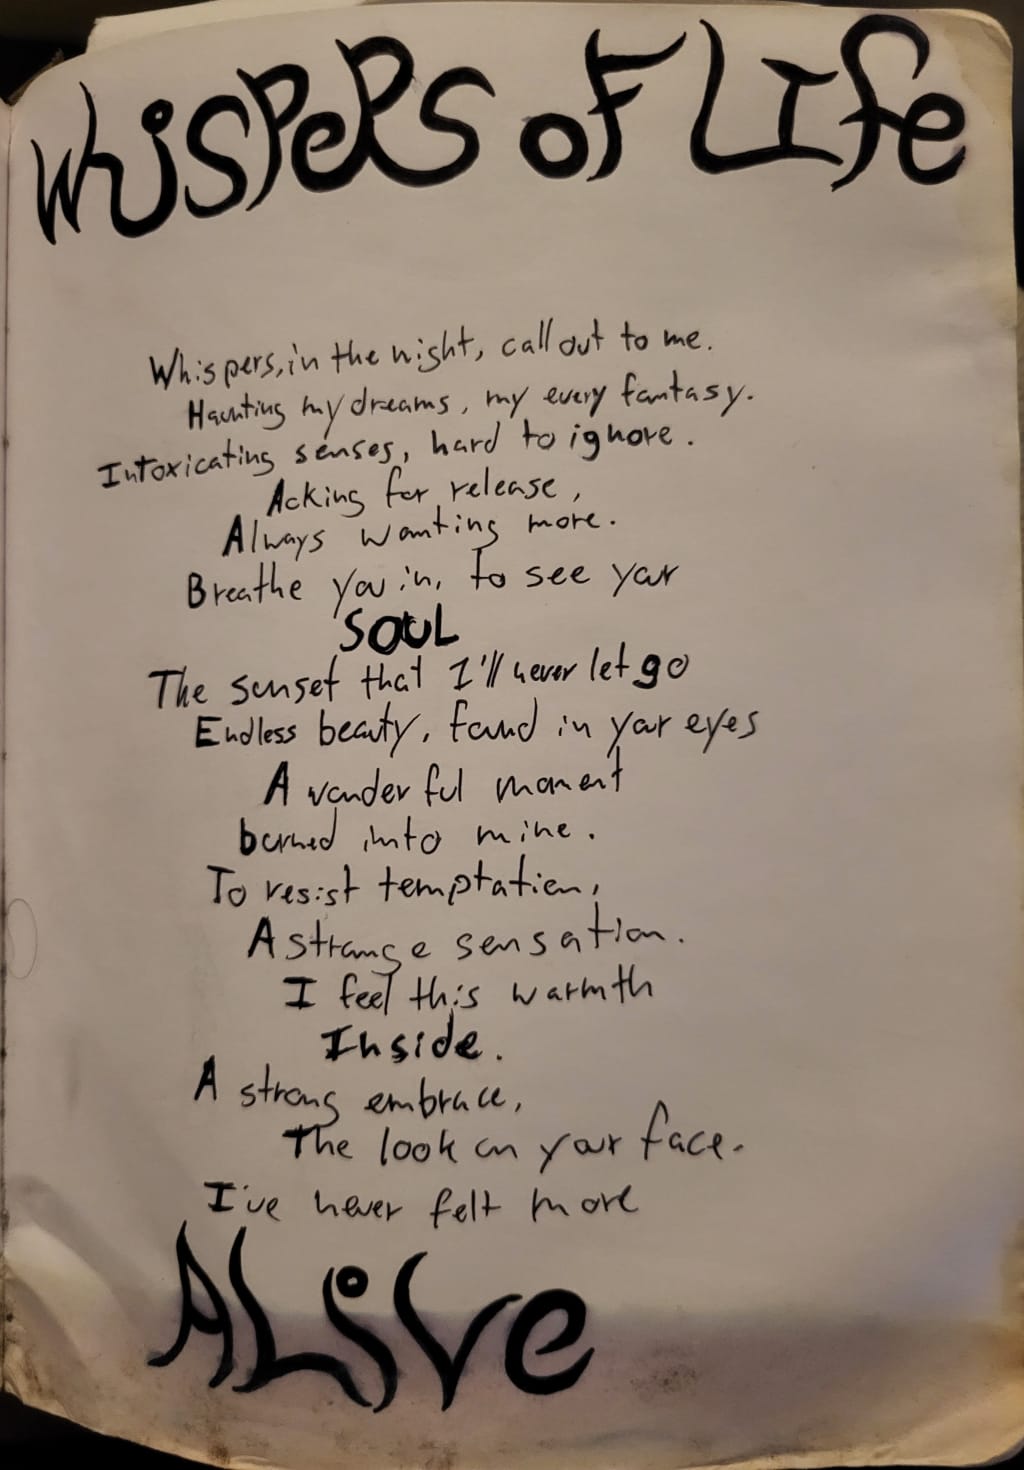 WHiSPeRS oF LIfe
Whispers, in the night, call out to me.
Haunting my dreams, my every fantasy.
Intoxicating senses, hard to ignore.
Acking for release,
Always wanting more.
Breathe you in, to see your
SOUL
The sunset that I'll never let go
Endless beauty, found in your eyes
A wonderful moment
burned into mine.
To resist temptation,
A strange sensation.
I feel this warmth
Inside.
A strong embrace,
The look on your face.
I've never felt more
ALiVe